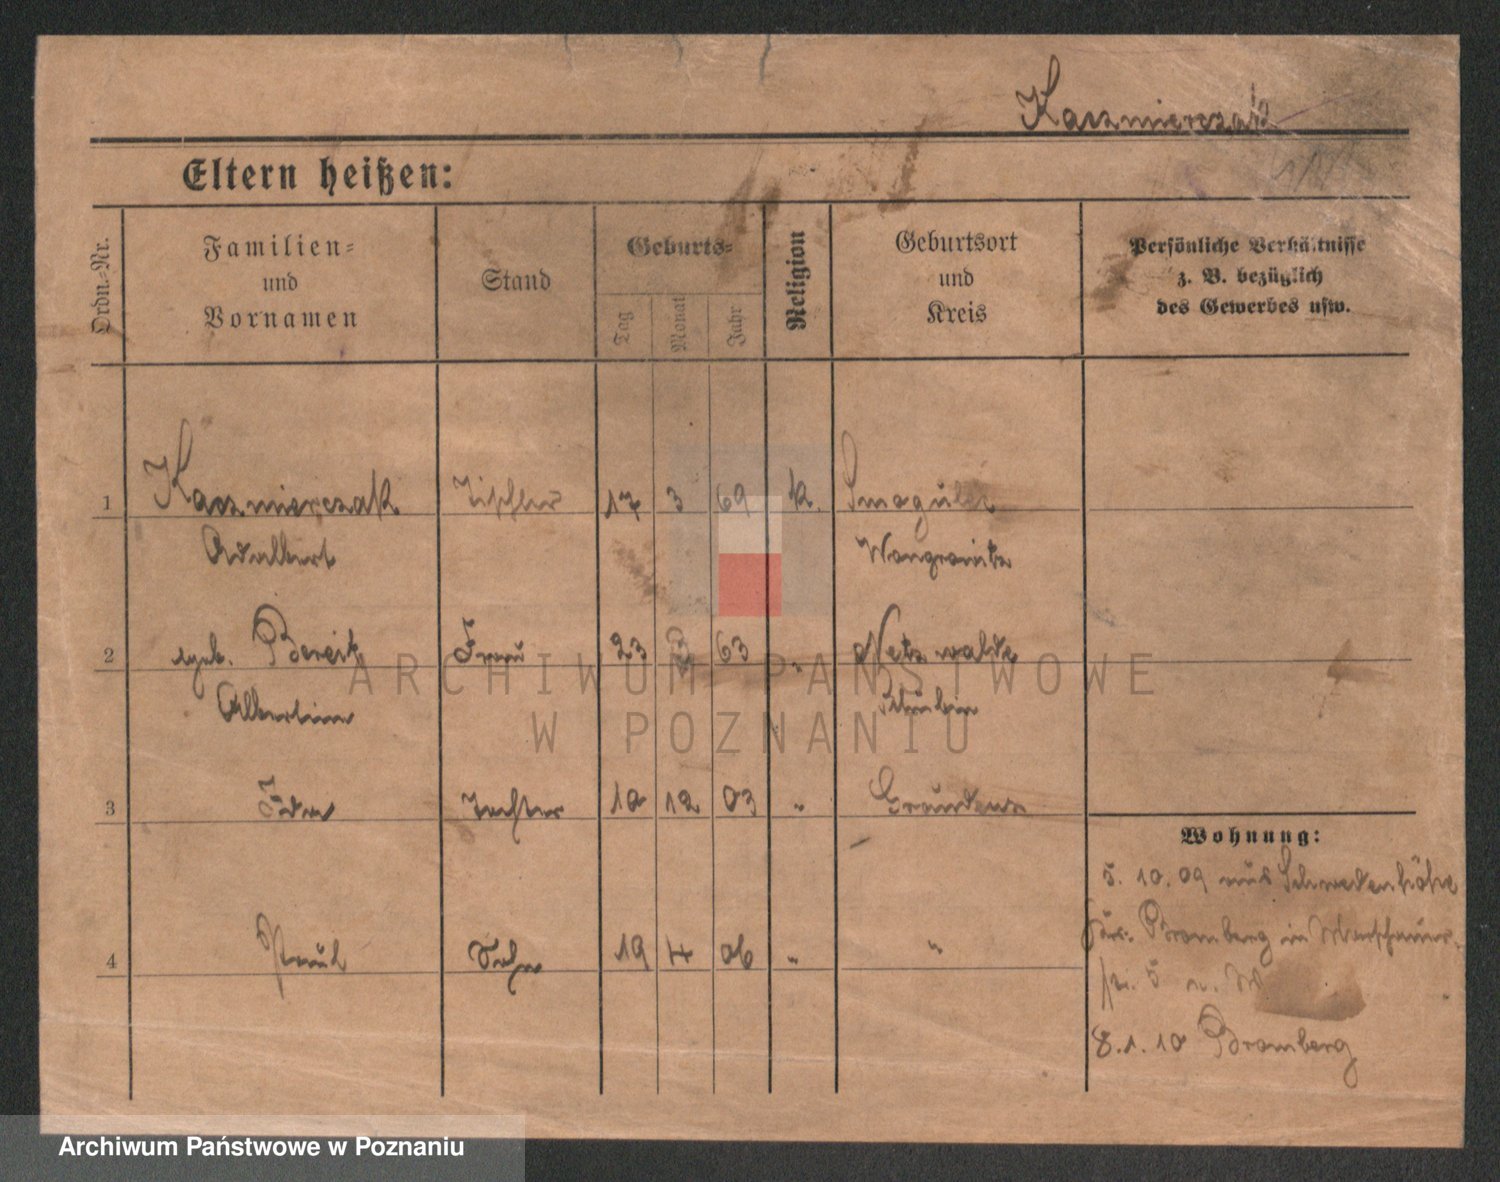 Kaczmierczak
Eltern heißen:
Ordn.-Nr.
Familien-
und
Vornamen
Stand
Geburts-
Tag
Monat
Jahr
Religion
Geburtsort
und
Kreis
Persönliche Verhältnisse
z. B. bezüglich
des Gewerbes usw.
1 Kaczmierczak Tischler 17 3 69 k. Smogulec
Adalbert Wongrowitz
2 geb. Bereit Frau 23 63 " Netzwalde
Albertine Schubin
3 Ida Tochter 10 12 03 " Graudenz
4 Paul Sohn 19 4 06 " "
Wohnung:
5. 10. 09 aus Schwedenhöhe
Bromberg in
5
8. 1. 10 Bromberg
ARCHIWUM PAŃSTWOWE
W POZNANIU
Archiwum Państwowe w Poznaniu